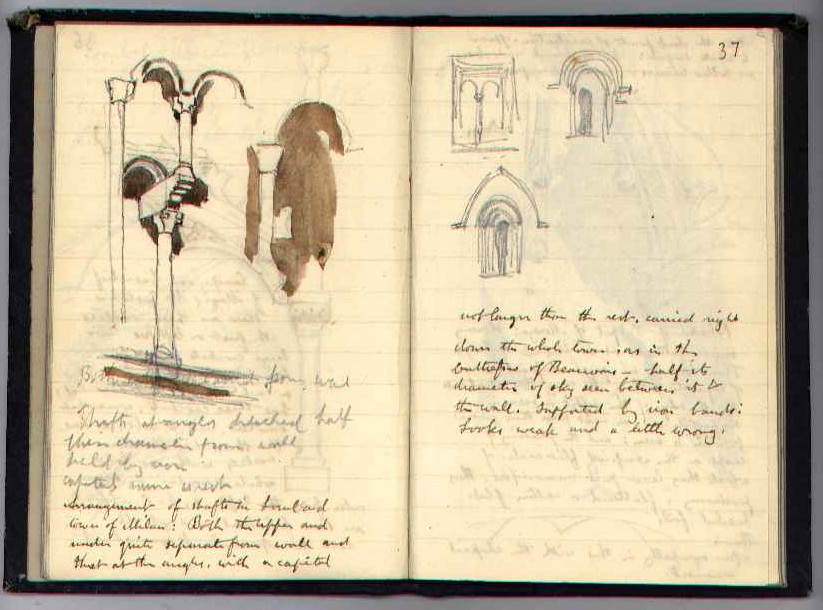 from wall
Shafts at angles detached half
their diameter from wall
held by iron
capital
arrangement of shafts in Lombard
tower of Milan: Both the upper and
under quite separate from wall and
that at the angles, with a capital
37
not larger than the rest, carried right
down the whole tower, as in the
buttresses of Beauvais - half its
diameter of sky seen between it &
the wall. Supported by iron bands:
Looks weak and a little wrong.